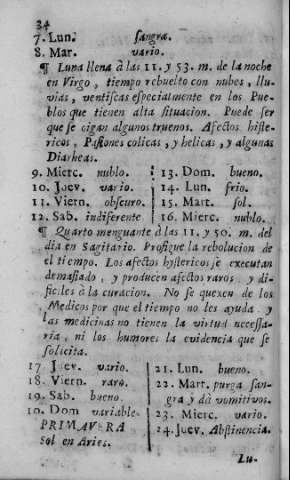 34
7. Lun. sangræ.
8. Mar. vario.
¶ Luna llena à las 11. y 53. m. de la noche
en Virgo, tiempo rebuelto con nubes, llu-
vias, ventiscas especialmente en los Pue-
blos que tienen alta situacion. Puede ser
que se oigan algunos truenos. Afectos histe-
ricos, Passiones colicas, y helicas, y algunas
Diarheas.
9. Mierc. nublo.
10. Juev. vario.
11. Viern. obscuro.
12. Sab. indiferente
13. Dom. bueno.
14. Lun. frio.
15. Mart. sol.
16. Mierc. nublo.
¶ Quarto menguante à las 11. y 50. m. del
dia en Sagitario. Prosigue la rebolucion de
el tiempo. Los afectos hystericos se executan
demasiado, y producen afectos raros, y di-
ficiles à la curacion. No se quexen de los
Medicos por que el tiempo no les ayuda y
las medicinas no tienen la virtud necessa-
ria, ni los humores la evidencia que se
solicita.
17 Juev. vario.
18. Viern. raro.
19. Sab. bueno.
10. Dom variable.
PRIMAVERA
Sol en Aries.
21. Lun. bueno.
22. Mart. purga san-
gra y dà vomitivos.
23. Mierc. vario.
24. Juev. Abstinencia.
Lu-